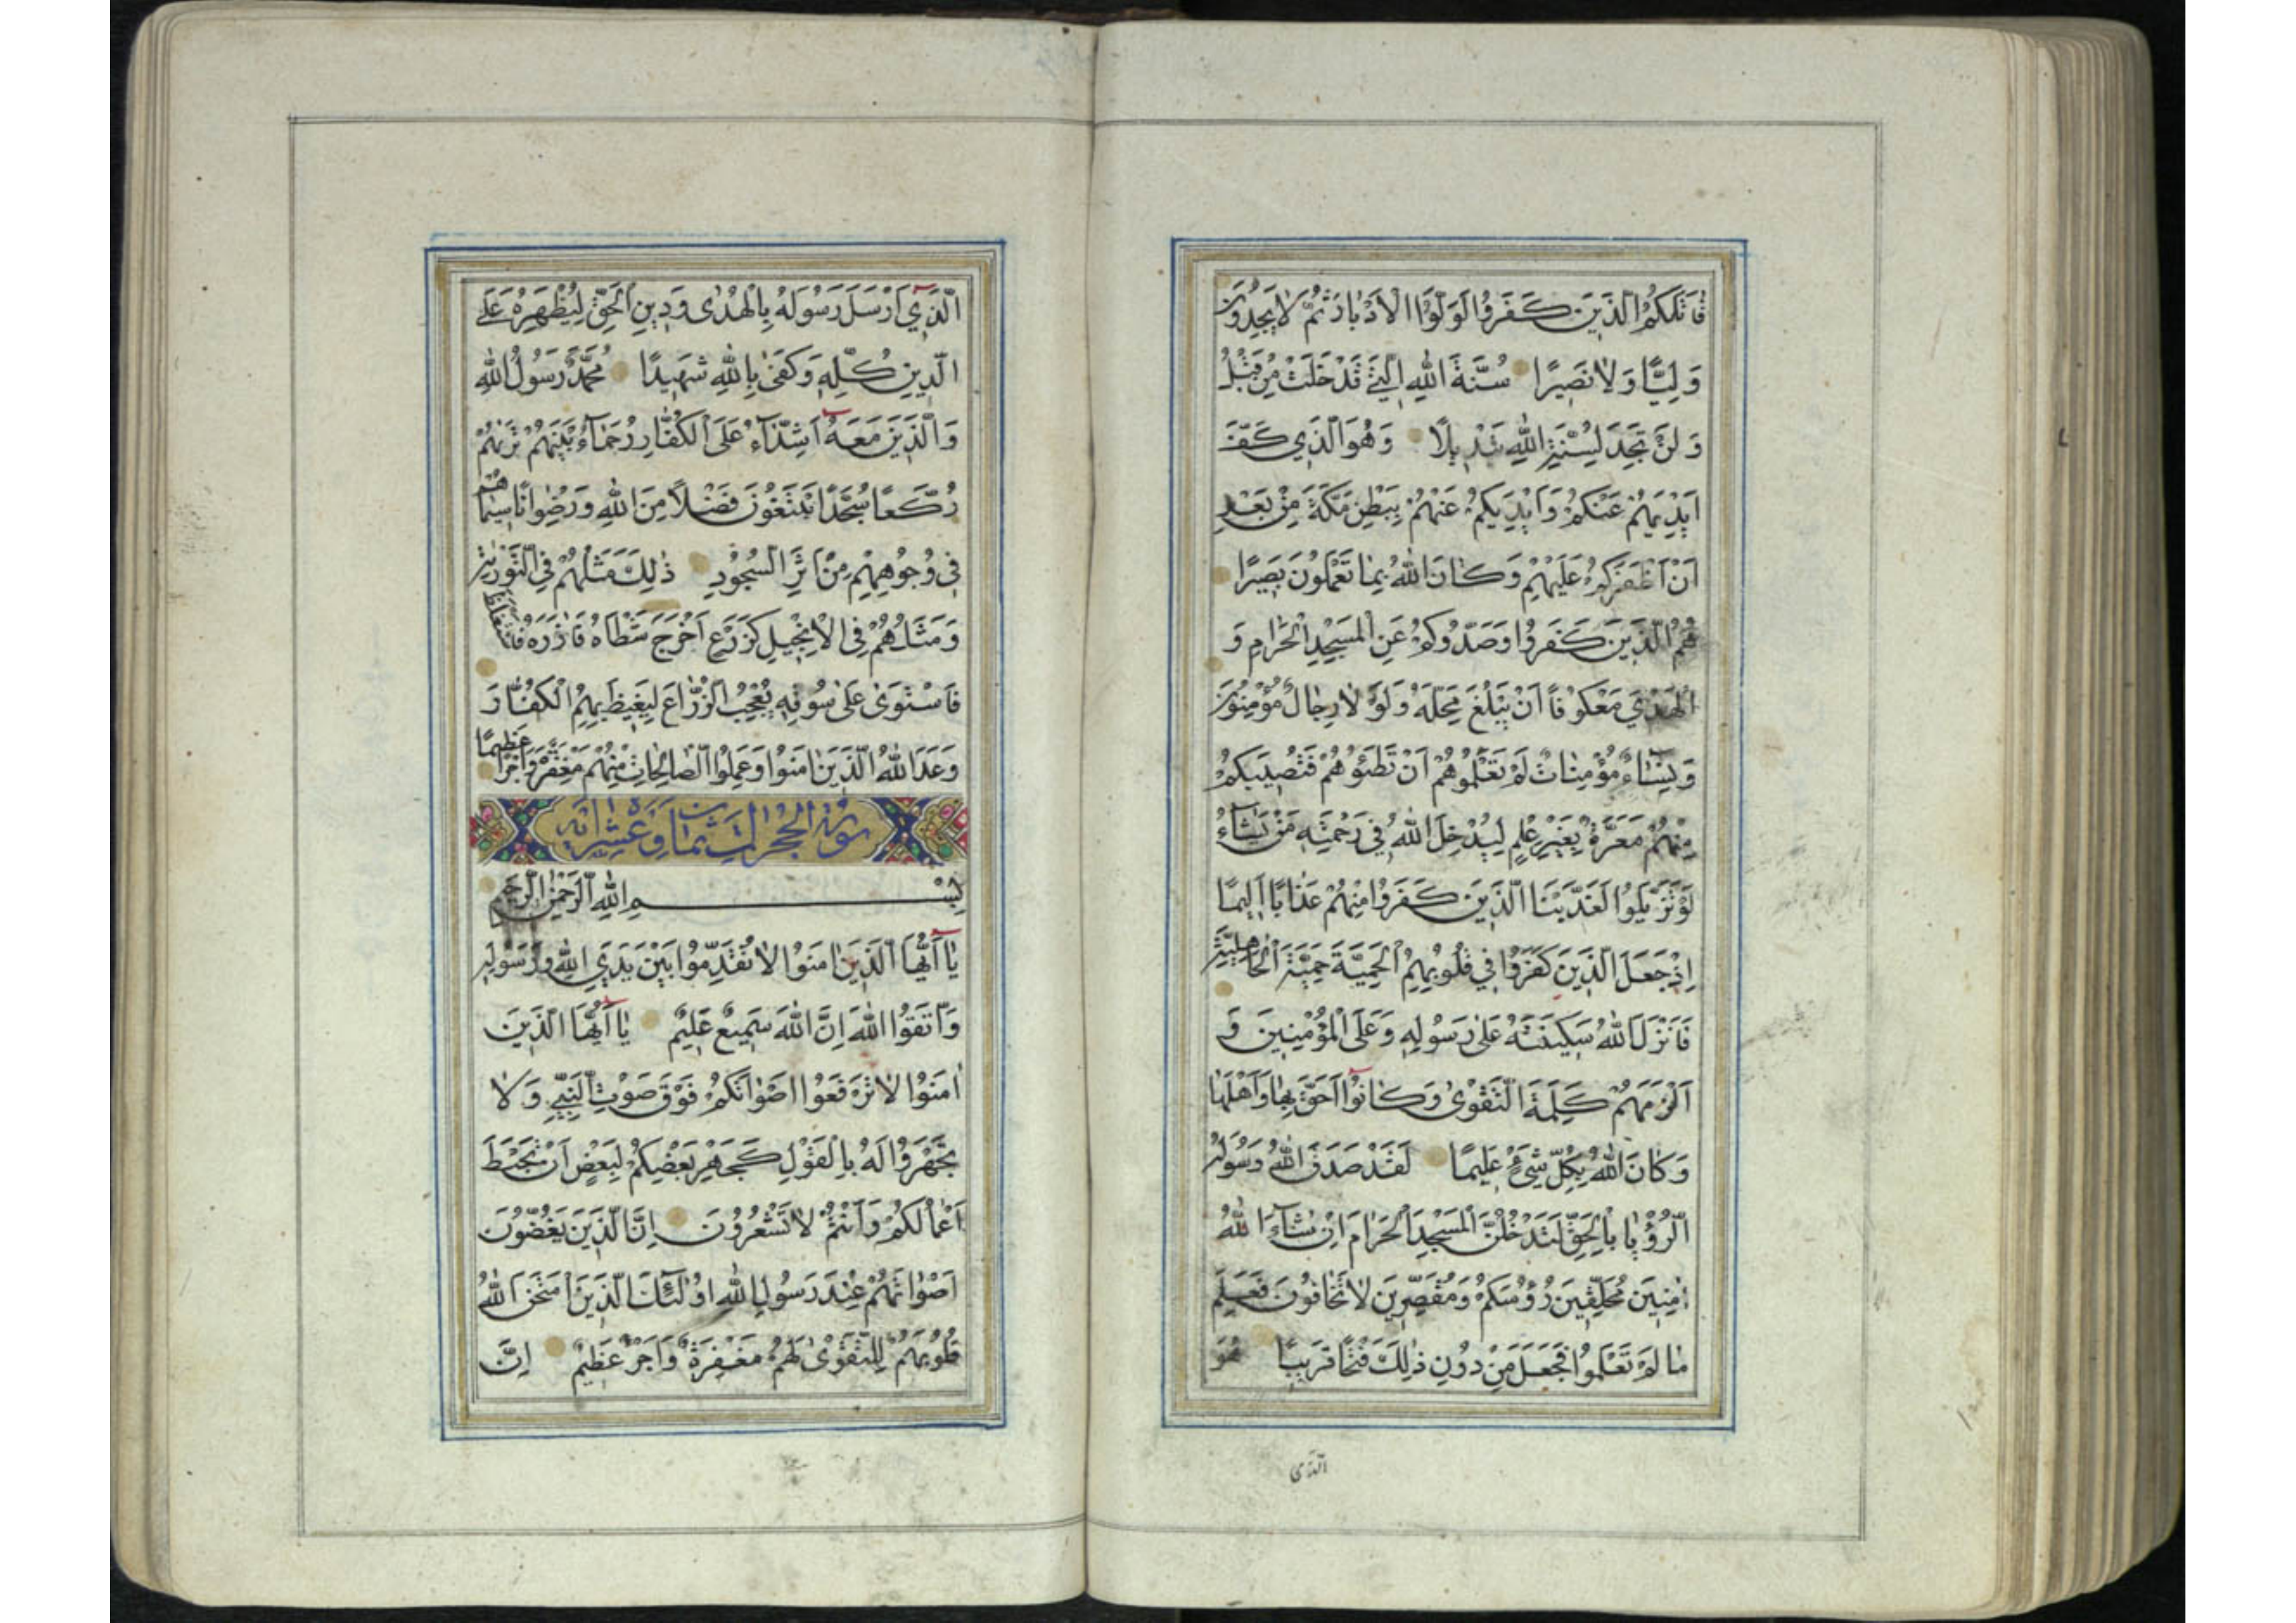 قَاتَلَكُمُ الَّذِينَ كَفَرُوا لَوَلَّوُا الْأَدْبَارَ ثُمَّ لَا يَجِدُونَ
وَلِيًّا وَلَا نَصِيرًا سُنَّةَ اللَّهِ الَّتِي قَدْ خَلَتْ مِنْ قَبْلُ
وَلَنْ تَجِدَ لِسُنَّةِ اللَّهِ تَبْدِيلًا وَهُوَ الَّذِي كَفَّ
أَيْدِيَهُمْ عَنْكُمْ وَأَيْدِيَكُمْ عَنْهُمْ بِبَطْنِ مَكَّةَ مِنْ بَعْدِ
أَنْ أَظْفَرَكُمْ عَلَيْهِمْ وَكَانَ اللَّهُ بِمَا تَعْمَلُونَ بَصِيرًا
هُمُ الَّذِينَ كَفَرُوا وَصَدُّوكُمْ عَنِ الْمَسْجِدِ الْحَرَامِ وَ
الْهَدْيَ مَعْكُوفًا أَنْ يَبْلُغَ مَحِلَّهُ وَلَوْلَا رِجَالٌ مُؤْمِنُونَ
وَنِسَاءٌ مُؤْمِنَاتٌ لَمْ تَعْلَمُوهُمْ أَنْ تَطَئُوهُمْ فَتُصِيبَكُمْ
مِنْهُمْ مَعَرَّةٌ بِغَيْرِ عِلْمٍ لِيُدْخِلَ اللَّهُ فِي رَحْمَتِهِ مَنْ يَشَاءُ
لَوْ تَزَيَّلُوا لَعَذَّبْنَا الَّذِينَ كَفَرُوا مِنْهُمْ عَذَابًا أَلِيمًا
إِذْ جَعَلَ الَّذِينَ كَفَرُوا فِي قُلُوبِهِمُ الْحَمِيَّةَ حَمِيَّةَ الْجَاهِلِيَّةِ
فَأَنْزَلَ اللَّهُ سَكِينَتَهُ عَلَى رَسُولِهِ وَعَلَى الْمُؤْمِنِينَ وَ
أَلْزَمَهُمْ كَلِمَةَ التَّقْوَى وَكَانُوا أَحَقَّ بِهَا وَأَهْلَهَا
وَكَانَ اللَّهُ بِكُلِّ شَيْءٍ عَلِيمًا لَقَدْ صَدَقَ اللَّهُ رَسُولَهُ
الرُّؤْيَا بِالْحَقِّ لَتَدْخُلُنَّ الْمَسْجِدَ الْحَرَامَ إِنْ شَاءَ اللَّهُ
آمِنِينَ مُحَلِّقِينَ رُءُوسَكُمْ وَمُقَصِّرِينَ لَا تَخَافُونَ فَعَلِمَ
مَا لَمْ تَعْلَمُوا فَجَعَلَ مِنْ دُونِ ذَلِكَ فَتْحًا قَرِيبًا هُوَ
الَّذِي
الَّذِي أَرْسَلَ رَسُولَهُ بِالْهُدَى وَدِينِ الْحَقِّ لِيُظْهِرَهُ عَلَى
الدِّينِ كُلِّهِ وَكَفَى بِاللَّهِ شَهِيدًا مُحَمَّدٌ رَسُولُ اللَّهِ
وَالَّذِينَ مَعَهُ أَشِدَّاءُ عَلَى الْكُفَّارِ رُحَمَاءُ بَيْنَهُمْ تَرَاهُمْ
رُكَّعًا سُجَّدًا يَبْتَغُونَ فَضْلًا مِنَ اللَّهِ وَرِضْوَانًا سِيمَاهُمْ
فِي وُجُوهِهِمْ مِنْ أَثَرِ السُّجُودِ ذَلِكَ مَثَلُهُمْ فِي التَّوْرَاةِ
وَمَثَلُهُمْ فِي الْإِنْجِيلِ كَزَرْعٍ أَخْرَجَ شَطْأَهُ فَآزَرَهُ فَاسْتَغْلَظَ
فَاسْتَوَى عَلَى سُوقِهِ يُعْجِبُ الزُّرَّاعَ لِيَغِيظَ بِهِمُ الْكُفَّارَ
وَعَدَ اللَّهُ الَّذِينَ آمَنُوا وَعَمِلُوا الصَّالِحَاتِ مِنْهُمْ مَغْفِرَةً وَأَجْرًا عَظِيمًا
سورة الحجرات ثمان وعشر آية
بِسْمِ اللَّهِ الرَّحْمَنِ الرَّحِيمِ
يَا أَيُّهَا الَّذِينَ آمَنُوا لَا تُقَدِّمُوا بَيْنَ يَدَيِ اللَّهِ وَرَسُولِهِ
وَاتَّقُوا اللَّهَ إِنَّ اللَّهَ سَمِيعٌ عَلِيمٌ يَا أَيُّهَا الَّذِينَ
آمَنُوا لَا تَرْفَعُوا أَصْوَاتَكُمْ فَوْقَ صَوْتِ النَّبِيِّ وَلَا
تَجْهَرُوا لَهُ بِالْقَوْلِ كَجَهْرِ بَعْضِكُمْ لِبَعْضٍ أَنْ تَحْبَطَ
أَعْمَالُكُمْ وَأَنْتُمْ لَا تَشْعُرُونَ إِنَّ الَّذِينَ يَغُضُّونَ
أَصْوَاتَهُمْ عِنْدَ رَسُولِ اللَّهِ أُولَئِكَ الَّذِينَ امْتَحَنَ اللَّهُ
قُلُوبَهُمْ لِلتَّقْوَى لَهُمْ مَغْفِرَةٌ وَأَجْرٌ عَظِيمٌ إِنَّ